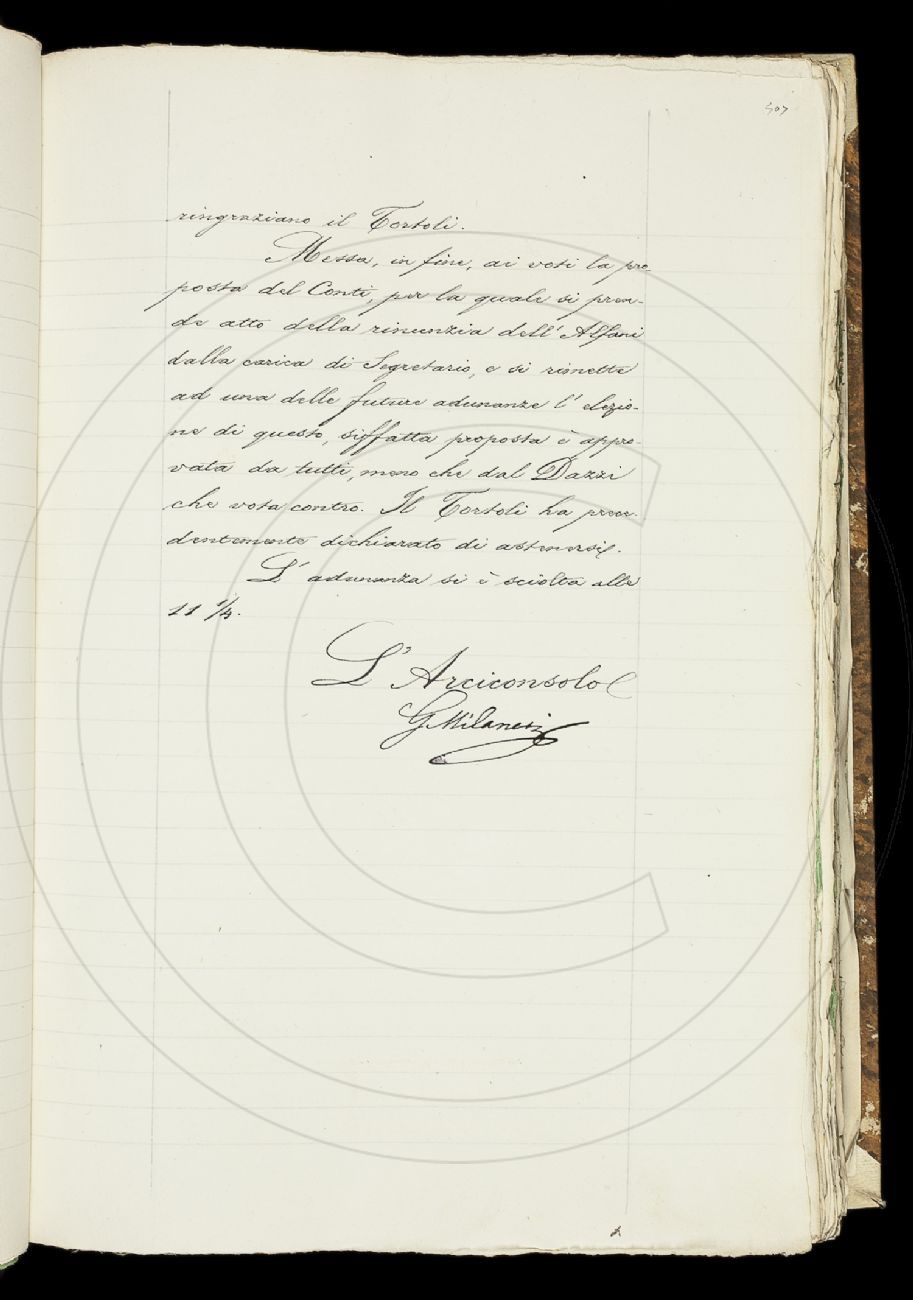 507
ringraziano il Tortoli.
Messa, in fine, ai voti la pro-
posta del Conti, per la quale si pren-
de atto della rinunzia dell'Alfani
dalla carica di Segretario, e si rimette
ad una delle future adunanze l'elezio-
ne di questo, siffatta proposta è appro-
vata da tutti, meno che dal Dazzi
che vota contro. Il Tortoli ha prece-
dentemente dichiarato di astenersi.
L'adunanza si è sciolta alle
11 1/4.
L'Arciconsolo
G Milanesi